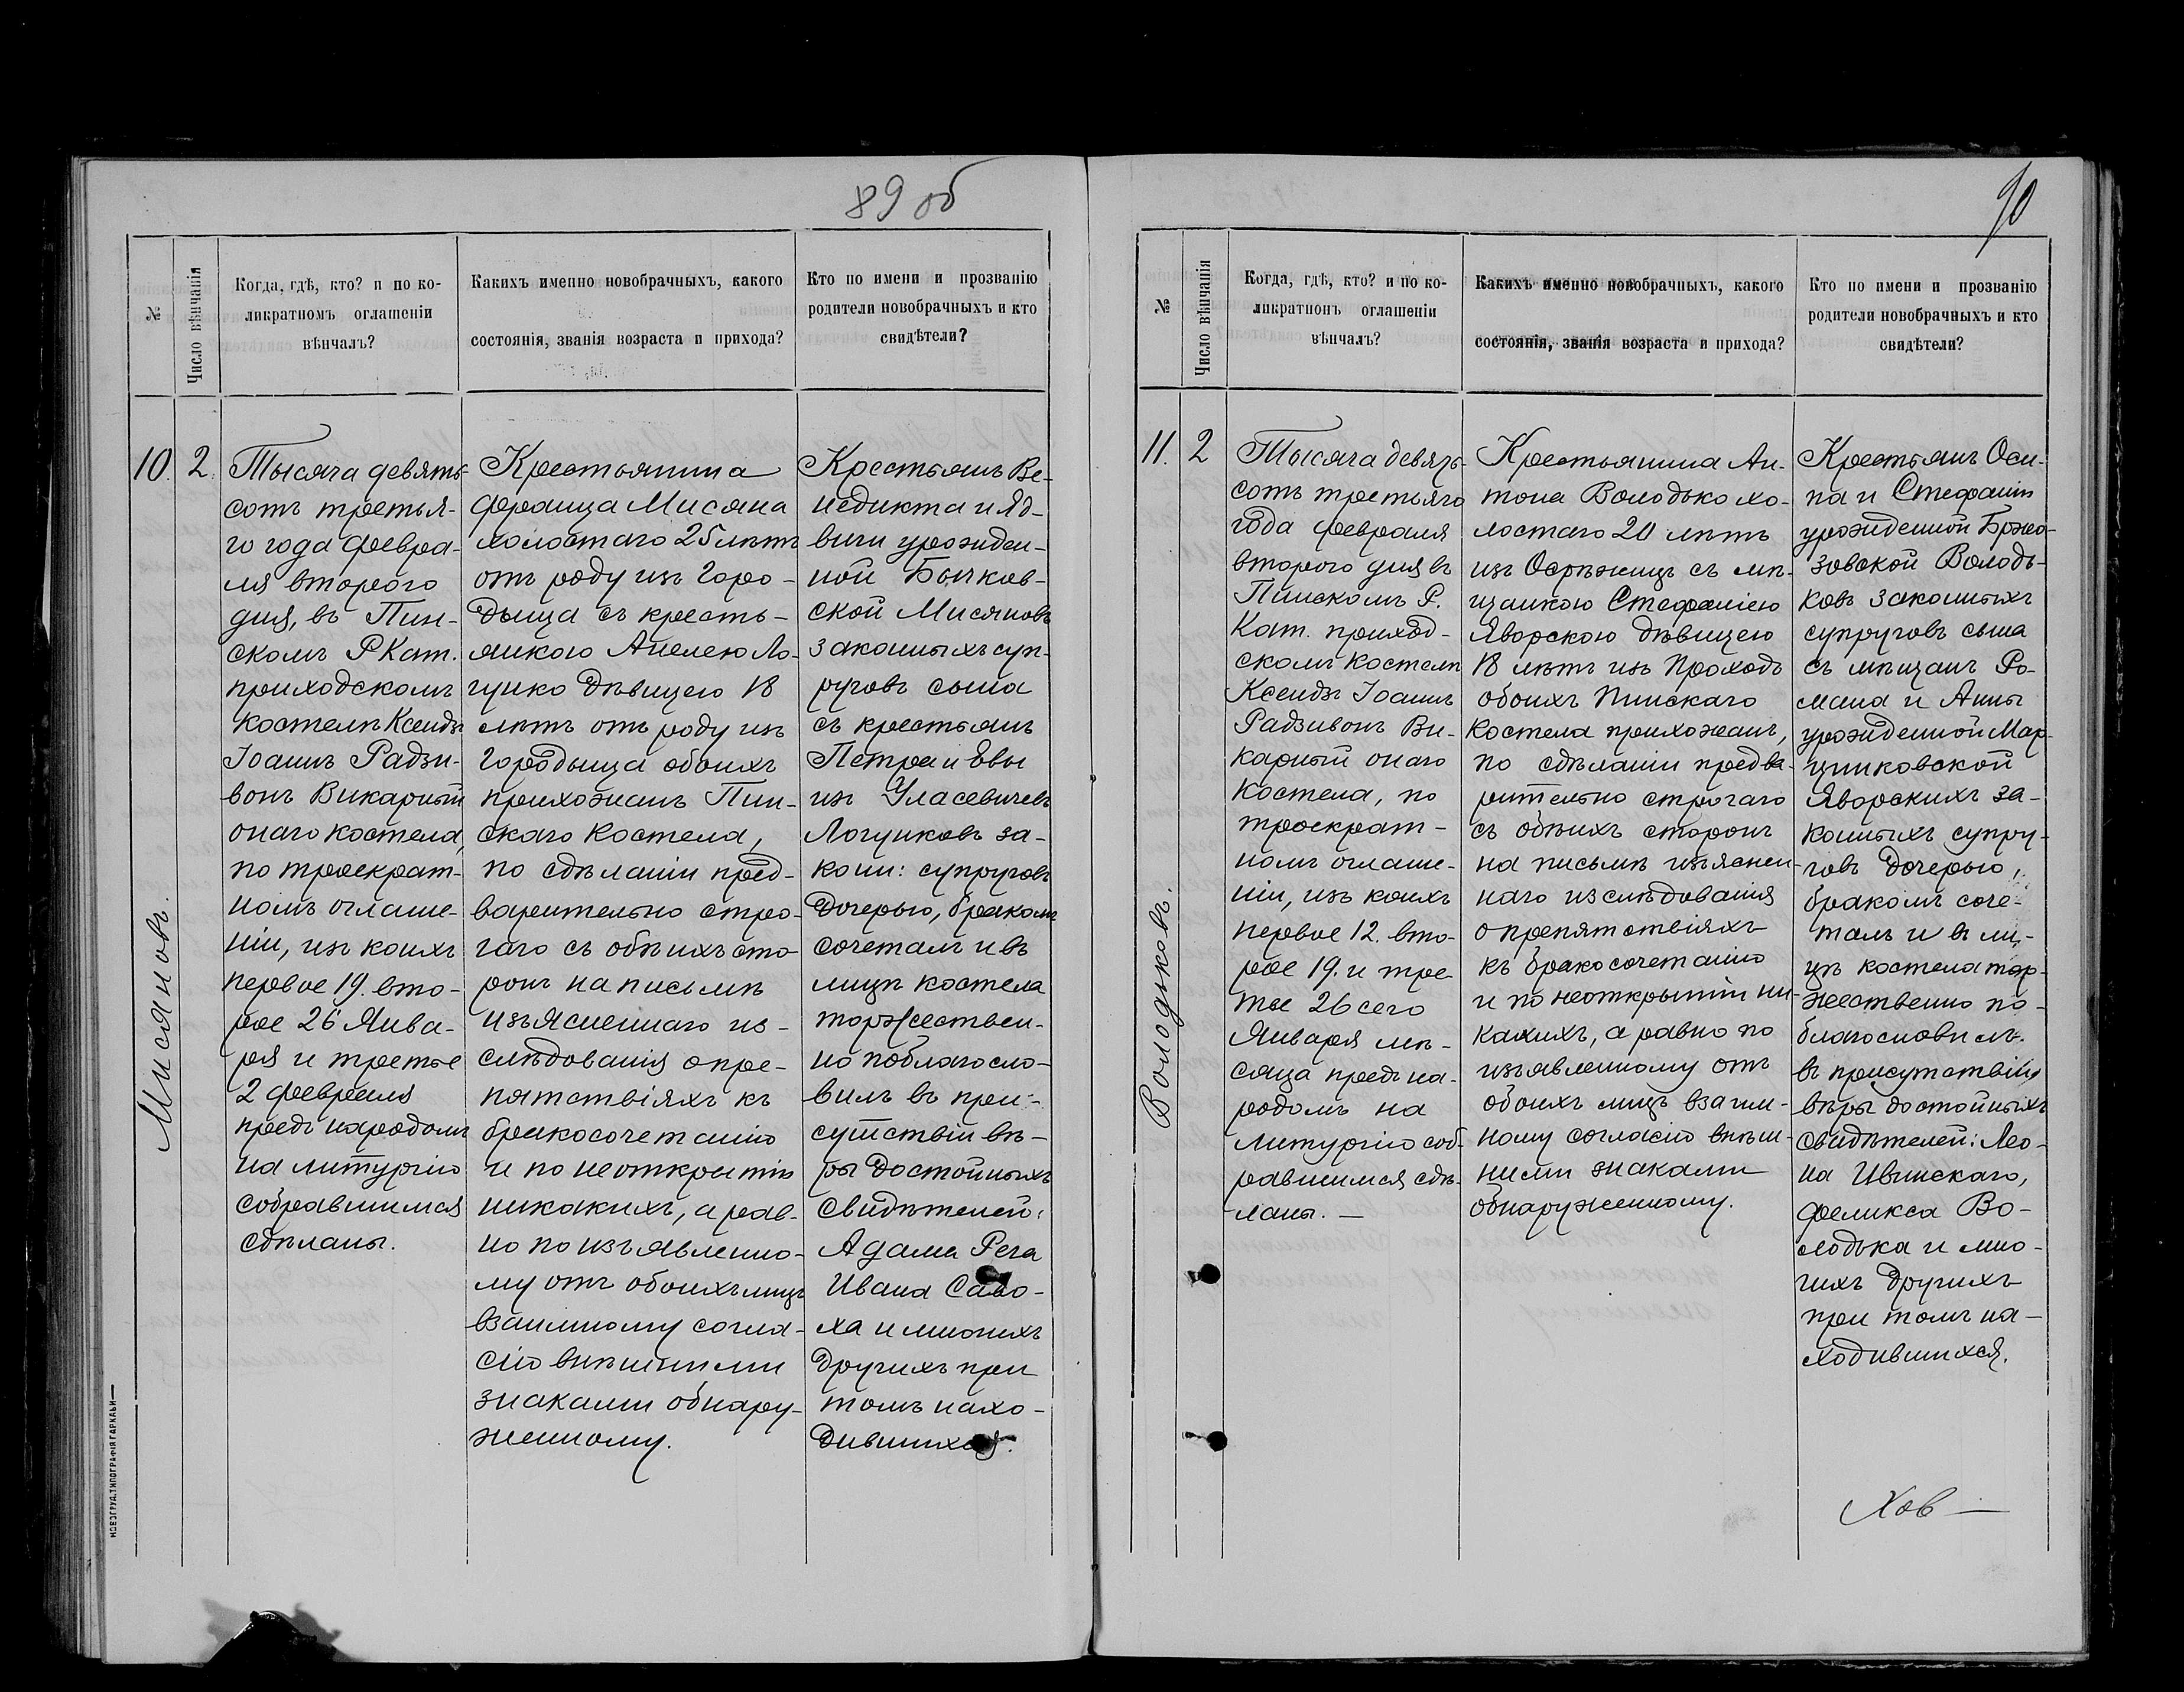 89 об
№
Число вѣнчанія
Когда, гдѣ, кто? и по ко-
ликратномъ оглашеніи
вѣнчалъ?
Какихъ именно новобрачныхъ, какого
состоянія, званія возраста и прихода?
Кто по имени и прозванію
родители новобрачныхъ и кто
свидѣтели?
10.
2.
Мисяновъ.
Тысяча девять-
сотъ третья-
го года февра-
ля второго
дня, въ Пин-
скомъ Р Кат.
приходскомъ
костелѣ Ксендзъ
Іоаннъ Радзи-
вонъ Викарный
онаго костела,
по троекрат-
номъ оглаше-
ніи, изъ коихъ
первое 19. вто-
рое 26 Янва-
ря и третье
2 февраля
предъ народомъ
на литургію
собравшимся
сдѣланы.
Крестьянина
Франца Мисяна
холостаго 25 лѣтъ
отъ роду изъ Горо-
дыща съ кресть-
янкою Анелею Ло-
гунко дѣвицею 18
лѣтъ отъ роду изъ
Городыща обоихъ
прихожанъ Пин-
скаго костела,
по сдѣланіи пред-
варительно стро-
гаго съ обѣихъ сто-
ронъ на письмѣ
изъясненнаго из-
слѣдованія о пре-
пятствіяхъ къ
бракосочетанію
и по неоткрытію
никакихъ, а рав-
но по изъявленно-
му отъ обоихъ лицъ
взаимному согла-
сію внѣшними
знаками обнару-
женному.
Крестьянъ Ве-
недикта и Яд-
виги урожден-
ной Бычков-
ской Мисяновъ
законныхъ суп-
руговъ сына
съ крестьянъ
Петра и Евы
изъ Уласевичевъ
Логунковъ за-
конн: супруговъ
дочерью, бракомъ
сочеталъ и въ
лицѣ костела
торжествен-
но поблагосло-
вилъ въ при-
сутствіи вѣ-
ры достойныхъ
свидѣтелей:
Адама Рега
Ивана Саво-
ха и многихъ
другихъ при
томъ нахо-
дившихся.
НОВОГРУД. ТИПОГРАФІЯ ГАРКАВИ
90
№
Число вѣнчанія
Когда, гдѣ, кто? и по ко-
ликратномъ оглашеніи
вѣнчалъ?
Какихъ именно новобрачныхъ, какого
состоянія, званія возраста и прихода?
Кто по имени и прозванію
родители новобрачныхъ и кто
свидѣтели?
11.
2
Володьковъ.
Тысяча девять-
сотъ третьяго
года февраля
второго дня въ
Пинскомъ Р.
Кат. приход-
скомъ костелѣ
Ксендзъ Іоаннъ
Радзивонъ Ви-
карный онаго
костела, по
троекрат-
номъ оглаше-
ніи, изъ коихъ
первое 12. вто-
рое 19. и тре
тье 26 сего
Января мѣ-
сяца предъ на-
родомъ на
литургію соб-
равшимся сдѣ-
ланы. —
Крестьянина Ан-
тона Володько хо-
лостаго 20 лѣтъ
изъ Осрѣжицъ съ мѣ-
щанкою Стефаніею
Яворскою дѣвицею
18 лѣтъ изъ Проходъ
обоихъ Пинскаго
костела прихожанъ,
по сдѣланіи предва-
рительно строгаго
съ обѣихъ сторонъ
на письмѣ изъяснен-
наго изслѣдованія
о препятствіяхъ
къ бракосочетанію
и по неоткрытіи ни-
какихъ, а равно по
изъявленному отъ
обоихъ лицъ взаим-
ному согласію внѣш-
ними знаками
обнаруженному.
Крестьянъ Оси-
па и Стефаніи
урожденной Бржо-
зовской Володь-
ковъ законныхъ
супруговъ сына
съ мѣщанъ Ро-
мана и Анны
урожденной Мар-
цинковской
Яворскихъ за-
конныхъ супру-
говъ дочерью,
бракомъ соче-
талъ и въ ли-
цѣ костела тор-
жественно по-
благословилъ
въ присутствіи
вѣры достойныхъ
свидѣтелей: Лео-
на Ивинскаго,
Феликса Во-
лодька и мно-
гихъ другихъ
при томъ на-
ходившихся.
Хов —